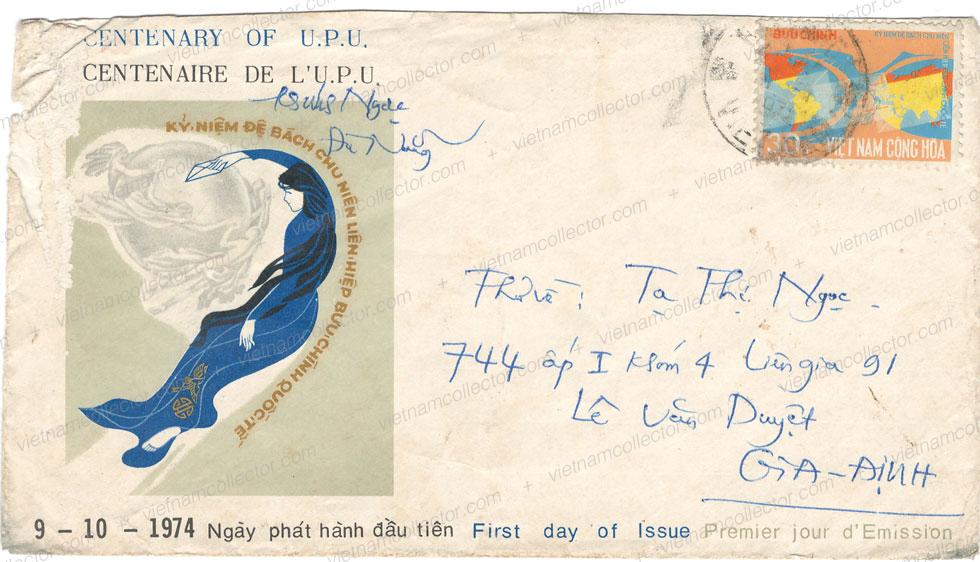 CENTENARY OF U.P.U.
CENTENAIRE DE L'U.P.U.
Ngọc
Đà Nẵng
KỶ-NIỆM ĐỆ BÁCH CHU NIÊN LIÊN-HIỆP BƯU-CHÍNH QUỐC-TẾ
VIỆT NAM CỘNG HÒA
Thư về: Tạ Thị Ngọc
744 ấp I Khóm 4 Liên gia 91
Lê Văn Duyệt
GIA-ĐỊNH
9 - 10 - 1974 Ngày phát hành đầu tiên First day of Issue Premier jour d'Emission
vietnamcollector.com